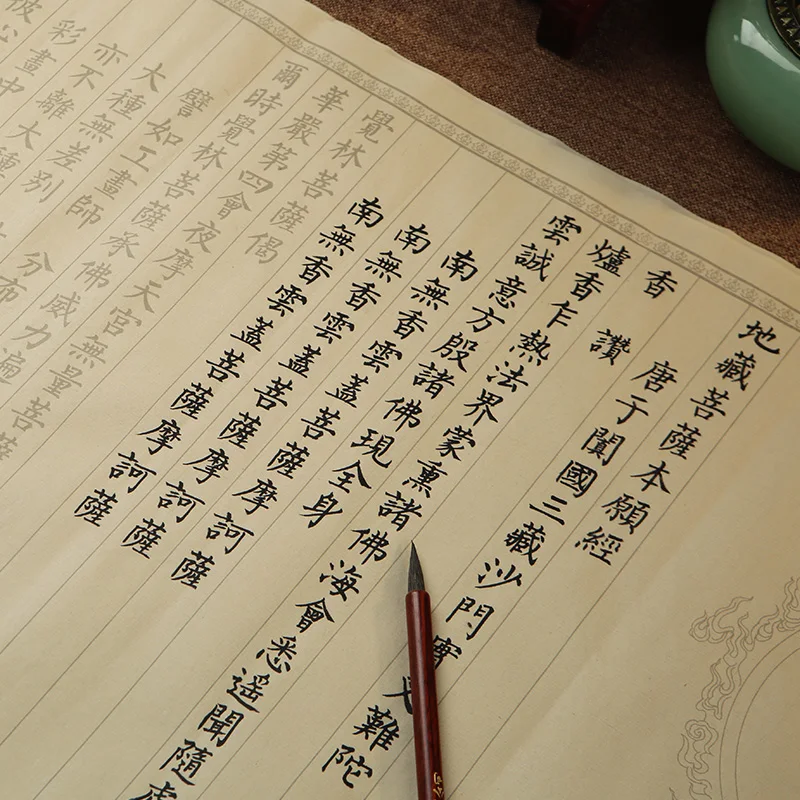 地藏菩薩本願經
唐于闐國三藏沙門實難陀
香讚
爐香乍熱法界蒙熏諸佛海會悉遙聞隨處
雲誠意方殷諸佛現全身
南無香雲蓋菩薩摩訶薩
南無香雲蓋菩薩摩訶薩
南無香雲蓋菩薩摩訶薩
覺林菩薩偈
華嚴第四會夜摩天宮無量菩薩
爾時覺林菩薩承佛威力遍
譬如工畫師分布
大種無差別
亦不離大種
彩畫中
彼心